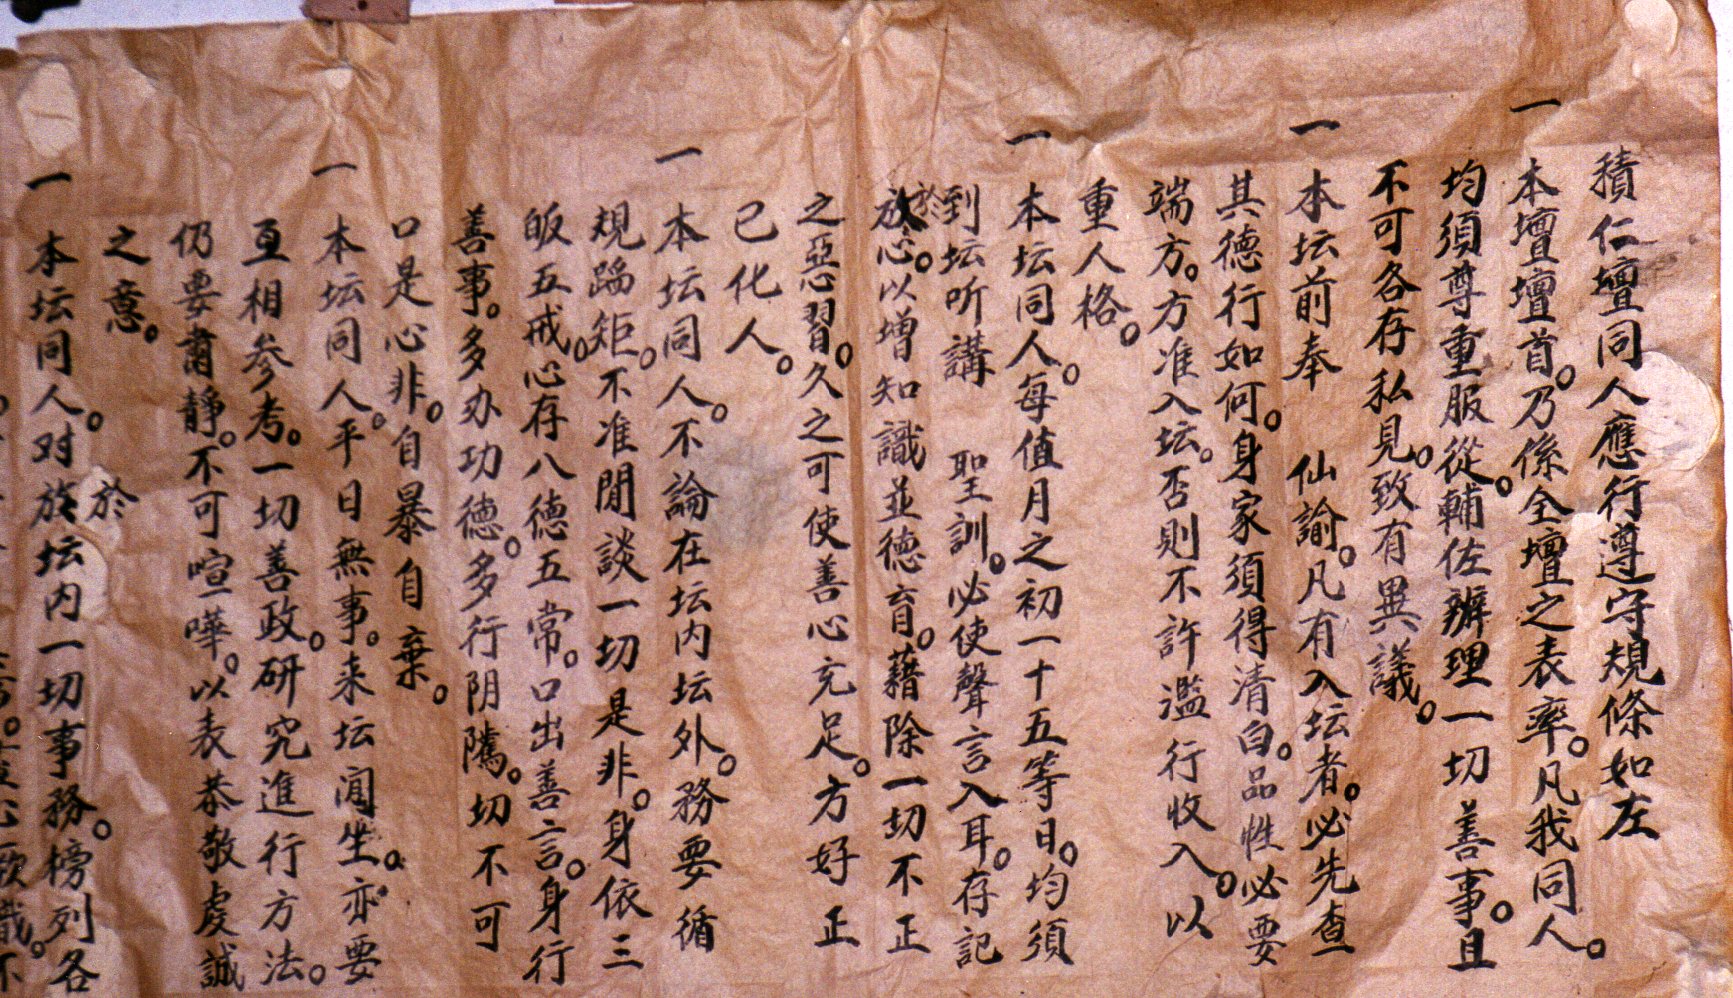 積仁壇同人應行遵守規條如左
一 本壇壇首。乃係全壇之表率。凡我同人。
均須尊重服從。輔佐辦理一切善事。且
不可各存私見。致有異議。
一 本坛前奉 仙諭。凡有入坛者。必先查
其德行如何。身家須得清白。品性必要
端方。方准入坛。否則不許濫行收入。以
重人格。
一 本坛同人。每值月之初一十五等日。均須
到坛听講 聖訓。必使聲言入耳。存記
於心。以增知識並德育。藉除一切不正
之惡習。久之可使善心充足。方好正
己化人。
一 本坛同人。不論在坛内坛外。務要循
規蹈矩。不准閒談一切是非。身依三
皈五戒。心存八德五常。口出善言。身行
善事。多办功德。多行阴隲。切不可
口是心非。自暴自棄。
一 本坛同人。平日無事。来坛闲坐。亦要
互相参考。一切善政。研究進行方法。
仍要肅靜。不可喧嘩。以表恭敬虔誠
之意。
一 本坛同人。对於坛内一切事務。榜列各